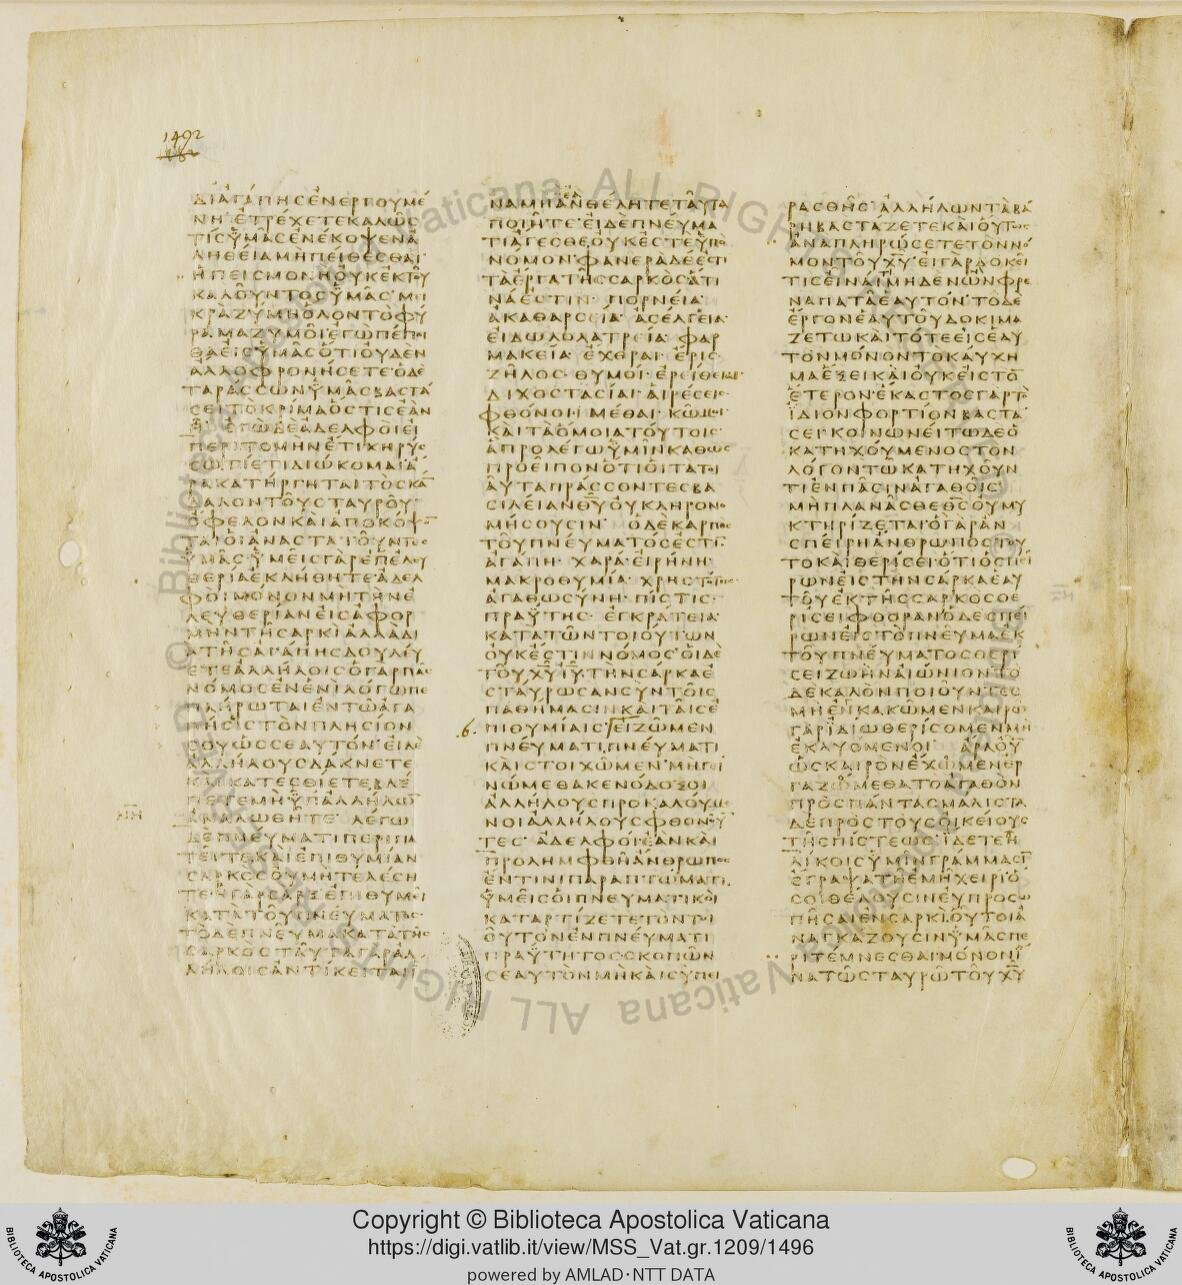 1492
ΔΙΑΓΑΠΗΣΕΝΕΡΓΟΥΜΕ
ΝΗ ΕΤΡΕΧΕΤΕΚΑΛΩΣ
ΤΙΣΥΜΑΣΕΝΕΚΟΨΕΝΑ
ΛΗΘΕΙΑΜΗΠΕΙΘΕΣΘΑΙ
ΗΠΕΙΣΜΟΝΗΟΥΚΕΚΤΟΥ
ΚΑΛΟΥΝΤΟΣΥΜΑΣ ΜΙ
ΚΡΑΖΥΜΗΟΛΟΝΤΟΦΥ
ΡΑΜΑΖΥΜΟΙ ΕΓΩΠΕΠΟΙ
ΘΑΕΙΣΥΜΑΣΟΤΙΟΥΔΕΝ
ΑΛΛΟΦΡΟΝΗΣΕΤΕ ΟΔΕ
ΤΑΡΑΣΣΩΝΥΜΑΣΒΑΣΤΑ
ΣΕΙΤΟΚΡΙΜΑΟΣΤΙΣΕΑΝ
Η ΕΓΩΔΕΑΔΕΛΦΟΙΕΙ
ΠΕΡΙΤΟΜΗΝΕΤΙΚΗΡΥΣ
ΣΩ ΤΙΕΤΙΔΙΩΚΟΜΑΙΑ
ΡΑΚΑΤΗΡΓΗΤΑΙΤΟΣΚΑ
ΔΑΛΟΝΤΟΥΣΤΑΥΡΟΥ
ΟΦΕΛΟΝΚΑΙΑΠΟΚΟΨΟ
ΤΑΙΟΙΑΝΑΣΤΑΤΟΥΝΤΕΣ
ΥΜΑΣ ΥΜΕΙΣΓΑΡΕΠΕΛΕΥ
ΘΕΡΙΑΕΚΛΗΘΗΤΕ ΑΔΕΛ
ΦΟΙ ΜΟΝΟΝΜΗΤΗΝΕ
ΛΕΥΘΕΡΙΑΝΕΙΣΑΦΟΡ
ΜΗΝΤΗΣΑΡΚΙ ΑΛΛΑΔΙ
ΑΤΗΣΑΓΑΠΗΣΔΟΥΛΕΥ
ΕΤΕΑΛΛΗΛΟΙΣ ΟΓΑΡΠΑΣ
ΝΟΜΟΣΕΝΕΝΙΛΟΓΩΠΕ
ΠΛΗΡΩΤΑΙΕΝΤΩΑΓΑ
ΠΗΣΙΣΤΟΝΠΛΗΣΙΟΝ
ΣΟΥΩΣΣΕΑΥΤΟΝ ΕΙΔΕ
ΑΛΛΗΛΟΥΣΔΑΚΝΕΤΕ
ΚΑΙΚΑΤΕΣΘΙΕΤΕΒΛΕ
ΠΕΤΕΜΗΥΠΑΛΛΗΛΩ
ΑΝΑΛΩΘΗΤΕ ΛΕΓΩ
ΔΕΠΝΕΥΜΑΤΙΠΕΡΙΠΑ
ΤΕΙΤΕΚΑΙΕΠΙΘΥΜΙΑΝ
ΣΑΡΚΟΣΟΥΜΗΤΕΛΕΣΗ
ΤΕ ΗΓΑΡΣΑΡΞΕΠΙΘΥΜΕΙ
ΚΑΤΑΤΟΥΠΝΕΥΜΑΤΟΣ
ΤΟΔΕΠΝΕΥΜΑΚΑΤΑΤΗΣ
ΣΑΡΚΟΣΤΑΥΤΑΓΑΡΑΛ
ΛΗΛΟΙΣΑΝΤΙΚΕΙΤΑΙΙ
ΝΑΜΗΑΝΘΕΛΗΤΕΤΑΥΤΑ
ΠΟΙΗΤΕ ΕΙΔΕΠΝΕΥΜΑ
ΤΙΑΓΕΣΘΕ ΟΥΚΕΣΤΕΥΠΟ
ΝΟΜΟΝ ΦΑΝΕΡΑΔΕΕΣΤΙ
ΤΑΕΡΓΑΤΗΣΣΑΡΚΟΣΑΤΙ
ΝΑΕΣΤΙΝ ΠΟΡΝΕΙΑ
ΑΚΑΘΑΡΣΙΑ ΑΣΕΛΓΕΙΑ
ΕΙΔΩΛΟΛΑΤΡΕΙΑ ΦΑΡ
ΜΑΚΕΙΑ ΕΧΘΡΑΙ ΕΡΙΣ
ΖΗΛΟΣ ΘΥΜΟΙ ΕΡΕΙΘΕΙΑΙ
ΔΙΧΟΣΤΑΣΙΑΙ ΑΙΡΕΣΕΙΣ
ΦΘΟΝΟΙ ΜΕΘΑΙ ΚΩΜΟΙ
ΚΑΙΤΑΟΜΟΙΑΤΟΥΤΟΙΣ
ΑΠΡΟΛΕΓΩΥΜΙΝΚΑΘΩΣ
ΠΡΟΕΙΠΟΝΟΤΙΟΙΤΑΤΟΙ
ΑΥΤΑΠΡΑΣΣΟΝΤΕΣΒΑ
ΣΙΛΕΙΑΝΘΥΟΥΚΛΗΡΟΝΟ
ΜΗΣΟΥΣΙΝ ΟΔΕΚΑΡΠΟΣ
ΤΟΥΠΝΕΥΜΑΤΟΣΕΣΤΙ
ΑΓΑΠΗ ΧΑΡΑ ΕΙΡΗΝΗ
ΜΑΚΡΟΘΥΜΙΑ ΧΡΗΣΤΟΤΗΣ
ΑΓΑΘΩΣΥΝΗ ΠΙΣΤΙΣ
ΠΡΑΥΤΗΣ ΕΓΚΡΑΤΕΙΑ
ΚΑΤΑΤΩΝΤΟΙΟΥΤΩΝ
ΟΥΚΕΣΤΙΝΝΟΜΟΣ ΟΙΔΕ
ΤΟΥΧΥΙΥΤΗΝΣΑΡΚΑΕ
ΣΤΑΥΡΩΣΑΝΣΥΝΤΟΙΣ
ΠΑΘΗΜΑΣΙΝΚΑΙΤΑΙΣΕ
ΠΙΘΥΜΙΑΙΣ ΕΙΖΩΜΕΝ
ΠΝΕΥΜΑΤΙ ΠΝΕΥΜΑΤΙ
ΚΑΙΣΤΟΙΧΩΜΕΝ ΜΗΓΕΙ
ΝΩΜΕΘΑΚΕΝΟΔΟΞΟΙ
ΑΛΛΗΛΟΥΣΠΡΟΚΑΛΟΥΜΕ
ΝΟΙΑΛΛΗΛΟΥΣΦΘΟΝΟΥ
ΤΕΣ ΑΔΕΛΦΟΙΕΑΝΚΑΙ
ΠΡΟΛΗΜΦΘΗΑΝΘΡΩΠΟΣ
ΕΝΤΙΝΙΠΑΡΑΠΤΩΜΑΤΙ
ΥΜΕΙΣΟΙΠΝΕΥΜΑΤΙΚΟΙ
ΚΑΤΑΡΤΙΖΕΤΕΤΟΝΤΟΙ
ΟΥΤΟΝΕΝΠΝΕΥΜΑΤΙ
ΠΡΑΥΤΗΤΟΣΣΚΟΠΩΝ
ΣΕΑΥΤΟΝΜΗΚΑΙΣΥΠΕΙ
ΡΑΣΘΗΣ ΑΛΛΗΛΩΝΤΑΒΑ
ΡΗΒΑΣΤΑΖΕΤΕΚΑΙΟΥΤΩΣ
ΑΝΑΠΛΗΡΩΣΕΤΕΤΟΝΝΟ
ΜΟΝΤΟΥΧΥ ΕΙΓΑΡΔΟΚΕΙ
ΤΙΣΕΙΝΑΙΤΙΜΗΔΕΝΩΝΦΡΕ
ΝΑΠΑΤΑΕΑΥΤΟΝ ΤΟΔΕ
ΕΡΓΟΝΕΑΥΤΟΥΔΟΚΙΜΑ
ΖΕΤΩΚΑΙΤΟΤΕΕΙΣΕΑΥ
ΤΟΝΜΟΝΟΝΤΟΚΑΥΧΗ
ΜΑΕΞΕΙΚΑΙΟΥΚΕΙΣΤΟ
ΕΤΕΡΟΝ ΕΚΑΣΤΟΣΓΑΡΤΟ
ΙΔΙΟΝΦΟΡΤΙΟΝΒΑΣΤΑ
ΣΕΙ ΚΟΙΝΩΝΕΙΤΩΔΕΟ
ΚΑΤΗΧΟΥΜΕΝΟΣΤΟΝ
ΛΟΓΟΝΤΩΚΑΤΗΧΟΥΝ
ΤΙΕΝΠΑΣΙΝΑΓΑΘΟΙΣ
ΜΗΠΛΑΝΑΣΘΕΘΣΟΥΜΥ
ΚΤΗΡΙΖΕΤΑΙ ΟΓΑΡΑΝ
ΣΠΕΙΡΗΑΝΘΡΩΠΟΣΤΟΥ
ΤΟΚΑΙΘΕΡΙΣΕΙ ΟΤΙΟΣΠΕΙ
ΡΩΝΕΙΣΤΗΝΣΑΡΚΑΕΑΥ
ΤΟΥΕΚΤΗΣΣΑΡΚΟΣΘΕ
ΡΙΣΕΙΦΘΟΡΑΝΟΔΕΣΠΕΙ
ΡΩΝΕΙΣΤΟΠΝΕΥΜΑΕΚ
ΤΟΥΠΝΕΥΜΑΤΟΣΘΕΡΙ
ΣΕΙΖΩΗΝΑΙΩΝΙΟΝΤΟ
ΔΕΚΑΛΟΝΠΟΙΟΥΝΤΕΣ
ΜΗΕΝΚΑΚΩΜΕΝΚΑΙΡΩ
ΓΑΡΙΔΙΩΘΕΡΙΣΟΜΕΝΜΗ
ΕΚΛΥΟΜΕΝΟΙ ΑΡΑΟΥ
ΩΣΚΑΙΡΟΝΕΧΩΜΕΝΕΡ
ΓΑΖΩΜΕΘΑΤΟΑΓΑΘΟΝ
ΠΡΟΣΠΑΝΤΑΣΜΑΛΙΣΤΑ
ΔΕΠΡΟΣΤΟΥΣΟΙΚΕΙΟΥΣ
ΤΗΣΠΙΣΤΕΩΣ ΙΔΕΤΕΗ
ΛΙΚΟΙΣΥΜΙΝΓΡΑΜΜΑΣΙ
ΕΓΡΑΨΑΤΗΕΜΗΧΕΙΡΙ Ο
ΣΟΙΘΕΛΟΥΣΙΝΕΥΠΡΟΣΩ
ΠΗΣΑΙΕΝΣΑΡΚΙ ΟΥΤΟΙΑ
ΝΑΓΚΑΖΟΥΣΙΝΥΜΑΣΠΕ
ΡΙΤΕΜΝΕΣΘΑΙΜΟΝΟΝΙ
ΝΑΤΩΣΤΑΥΡΩΤΟΥΧΥ
6
ΝΗ
Copyright © Biblioteca Apostolica Vaticana
https://digi.vatlib.it/view/MSS_Vat.gr.1209/1496
powered by AMLAD·NTT DATA
BIBLIOTECA APOSTOLICA VATICANA
BIBLIOTECA APOSTOLICA VATICANA